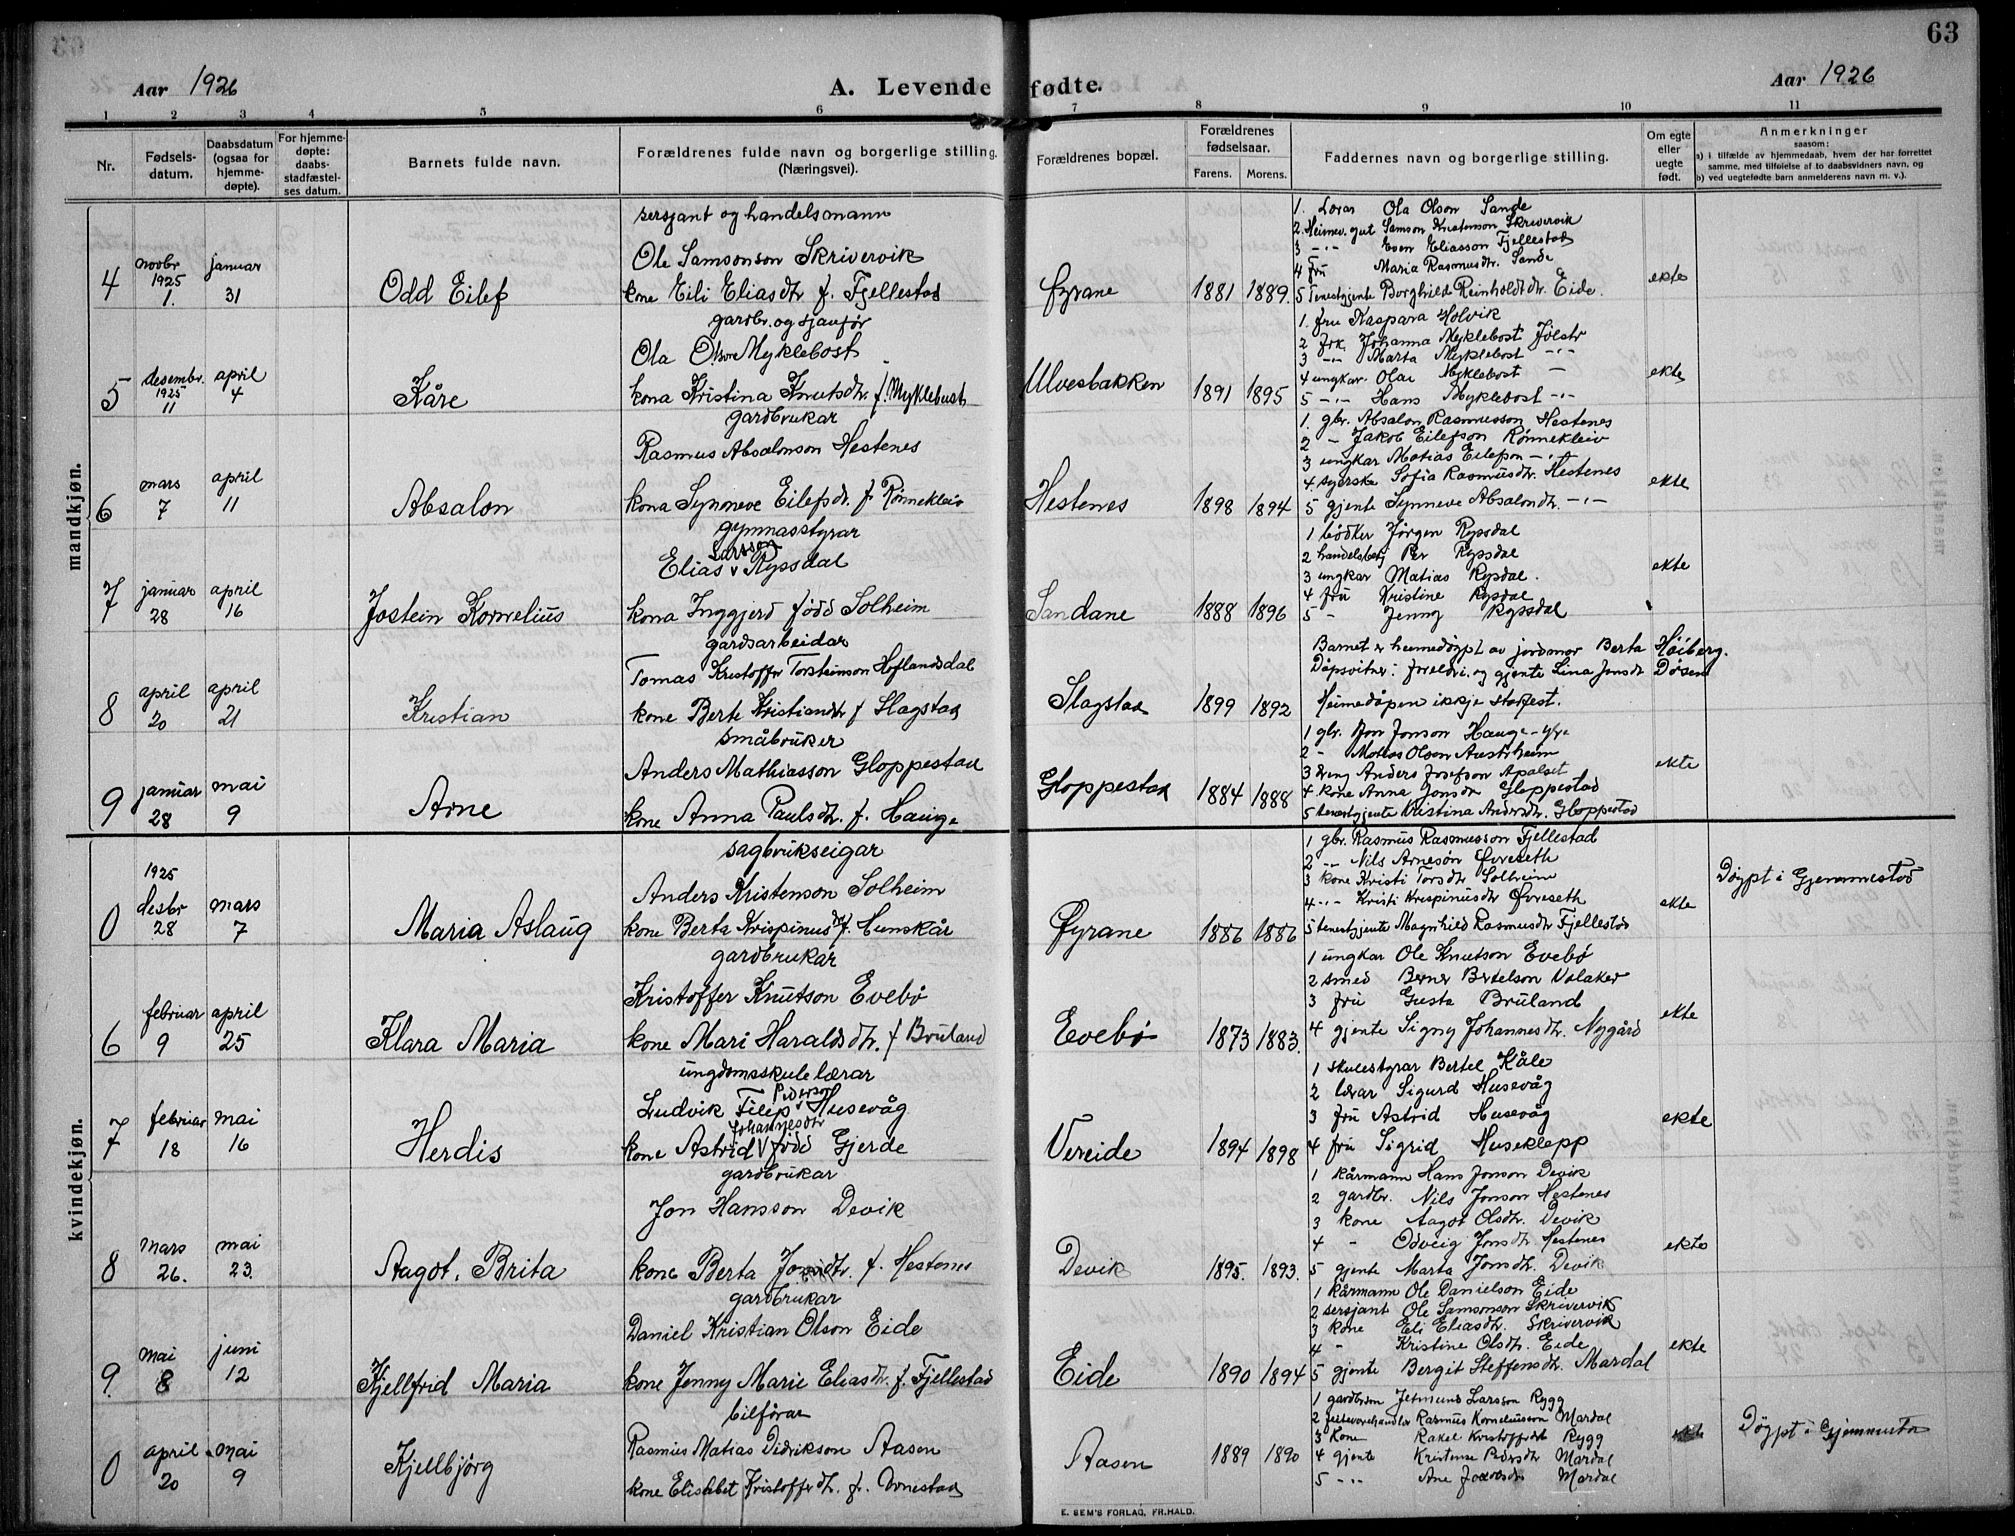 63
Aar 1926
A. Levende fødte.
Aar 1926
1 2 3 4 5 6 7 8 9 10 11
Nr.
Fødsels-
datum.
Daabsdatum
(ogsaa for
hjemme-
døpte).
For hjemme-
døpte:
daabs-
stadfæstel-
ses datum.
Barnets fulde navn.
Forældrenes fulde navn og borgerlige stilling.
(Næringsvei).
Forældrenes bopæl.
Forældrenes
fødselsaar.
Farens. Morens.
Faddernes navn og borgerlige stilling.
Om egte
eller
uegte
født.
Anmerkninger
saasom:
a) i tilfælde av hjemmedaab, hvem der har forrettet
samme, med tilføielse af to daabsvidners navn, og
b) ved uegtefødte barn anmelderens navn m. v.).
mandkjøn.
4
novbr
1925
1.
januar
31
Odd Eilef
sersjant og handelsmann
Ole Samsonson Skrivervik
kone Eili Eliasdtr f. Fjellestad
Øyrane
1881 1889.
1. Lærar Ola Olson Sande
2. Heimev. gut Samson Kristenson Skrivervik
3 -"- Even Eliasson Fjellestad
4 Fru Maria Rasmusdtr. Sande
5 Tenestgjente Borghild Reinholdtdtr. Eide.
ekte
5
desembr.
1925
11
april
4
Kåre
gardbr. og sjauför
Ola Olson Myklebost
kona Kristina Knutsdtr. f. Myklebust
Ulvesbakken
1891 1895
1. fru Kaspara Holvik
2 frk. Johanna Myklebost Jølstr
3 -"- Marta Myklebost -"-
4 ungkar Olai Myklebost -
5 -"- Hans Myklebost -"-
ekte
6
mars
7
april
11
Absalon
gardbrukar
Rasmus Absalonson Hestenes
kona Synneve Eilefsdr. f. Rønnekleiv
Hestenes
1898 1894
1. gbr. Absalon Rasmusson Hestenes
2 - Jakob Eilefson Rønnekleiv
3 ungkar Matias Eilefson -"-
4. syerske Sofia Rasmusdtr. Hestenes
5 gjente Synneve Absalondtr. -"-
ekte
7
januar
28
april
16
Jostein Kornelius
gymnasstyrar
Larsson
Elias v Ryssdal
kona Inggjerd fødd Solheim
Sandane
1888 1896
1 bødker Jørgen Ryssdal
2 handelsbetj Per Ryssdal
3 ungkar Matias Rysdal.
4 fru Kristine Rysdal
5 - Jenny Ryssdal
ekte
8
april
20
april
21
Kristian
gardsarbeidar
Tomas Kristoffer Torsteinson Hoflandsdal
kone Berte Kristiandtr f Slagstad
Slagstad
1899 1892
Barnet er heimedøypt av jordmor Berta Høiberg.
Dåpsvitne: foreldri og gjente Lina Jonsdt Døsen
Heimedåpen ikkje stadfest.
9
januar
28
mai
9
Arne
småbruker
Anders Mathiasson Gloppestad
kone Anna Paulsdtr. f. Hauge
Gloppestad
1884 1888
1 gbr. Jon Jonson Hauge
2 - Matias Olson Austrheim
3 Dreng Anders Josefson Apalset
4 kone Anna Jonsdtr Gloppestad
5 tenestgjente Kristina Andersdtr. Gloppestad
ekte
kvindekjøn.
0
1925
desbr
28
mars
7
Maria Aslaug
sagbrukseigar
Anders Kristenson Solheim
kone Berta Krispinusd f. Hunskår
Øyrane
1886 1886
1 gbr. Rasmus Rasmusson Fjellestad
2 -"- Nils Arneson Øvreseth
3 kone Kristi Torsdtr Solheim
4 -"- Kristi Krispinusdtr Øvreseth
5 tenestgjente Magnhild Rasmusdtr Fjellestad
ekte
Døypt i Gjemmestad
6
februar
9
april
25
Klara Maria
gardbrukar
Kristoffer Knutson Evebø
kone Mari Haraldsdtr. f Bruland
Evebø
1873 1883.
1 ungkar Ole Knutson Evebø
2 smed Berner Bertelson Volaker
3 fru Gusta Bruland
4 gjente Signy Johannesdtr. Nygård
ekte
7
februar
18
mai
16
Herdis
ungdomsskulelærar
Pederson
Ludvik Filip v Husevåg
Johannesdtr
kone Astrid v fødd Gjerde
Vereide
1894 1898
1 skulestyrar Bertel Kåle
2 lærar Sigurd Husevåg
3 fru Astrid Husevåg
4 fru Sigrid Huseklepp
ekte
8
mars
26.
mai
23.
Aagot, Brita
gardbrukar
Jon Hansson Devik
kone Berta Jonsdtr. f. Hestenes
Devik
1895. 1893.
1 kårmann Hans Jonson Devik
2 gardbr. Nils Jonson Hestenes
3 kone Aagot Olsdtr. Devik
4 - Odveig Jonsdtr Hestenes
5 gjente Marta Jonsdtr. Devik
ekte
9.
mai
8
juni
12
Kjellfrid Maria
gardbrukar
Daniel Kristian Olson Eide
kone Jenny Marie Eliasdtr. f. Fjellestad
Eide
1890 1894
1 kårmann Ole Danielson Eide
2 sersjant Ole Samsonson Skrivervik
3 kone Eli Eliasdtr. Skrivervik
4 " Kristine Olsdtr. Eide
5 gjente Bergit Steffensdtr. Mardal
ekte
0
april
20
mai
9
Kjellbjørg
bilförar
Rasmus Matias Didrikson Aasen
kone Elisabet Kristofferdtr. f. Arnestad
Aasen
1889 1890
1 gardbrukar Jetmund Larsson Rygg
2 Rasmus Korneliusson Mardal
3 Kone Rakel Kristoffersdt Rygg
4 gjente Kristense Pedersdtr Mardal
5 -"- Ane Mardal
Døypt i Gjemmestad
E. SEM'S FORLAG, FR.HALD.